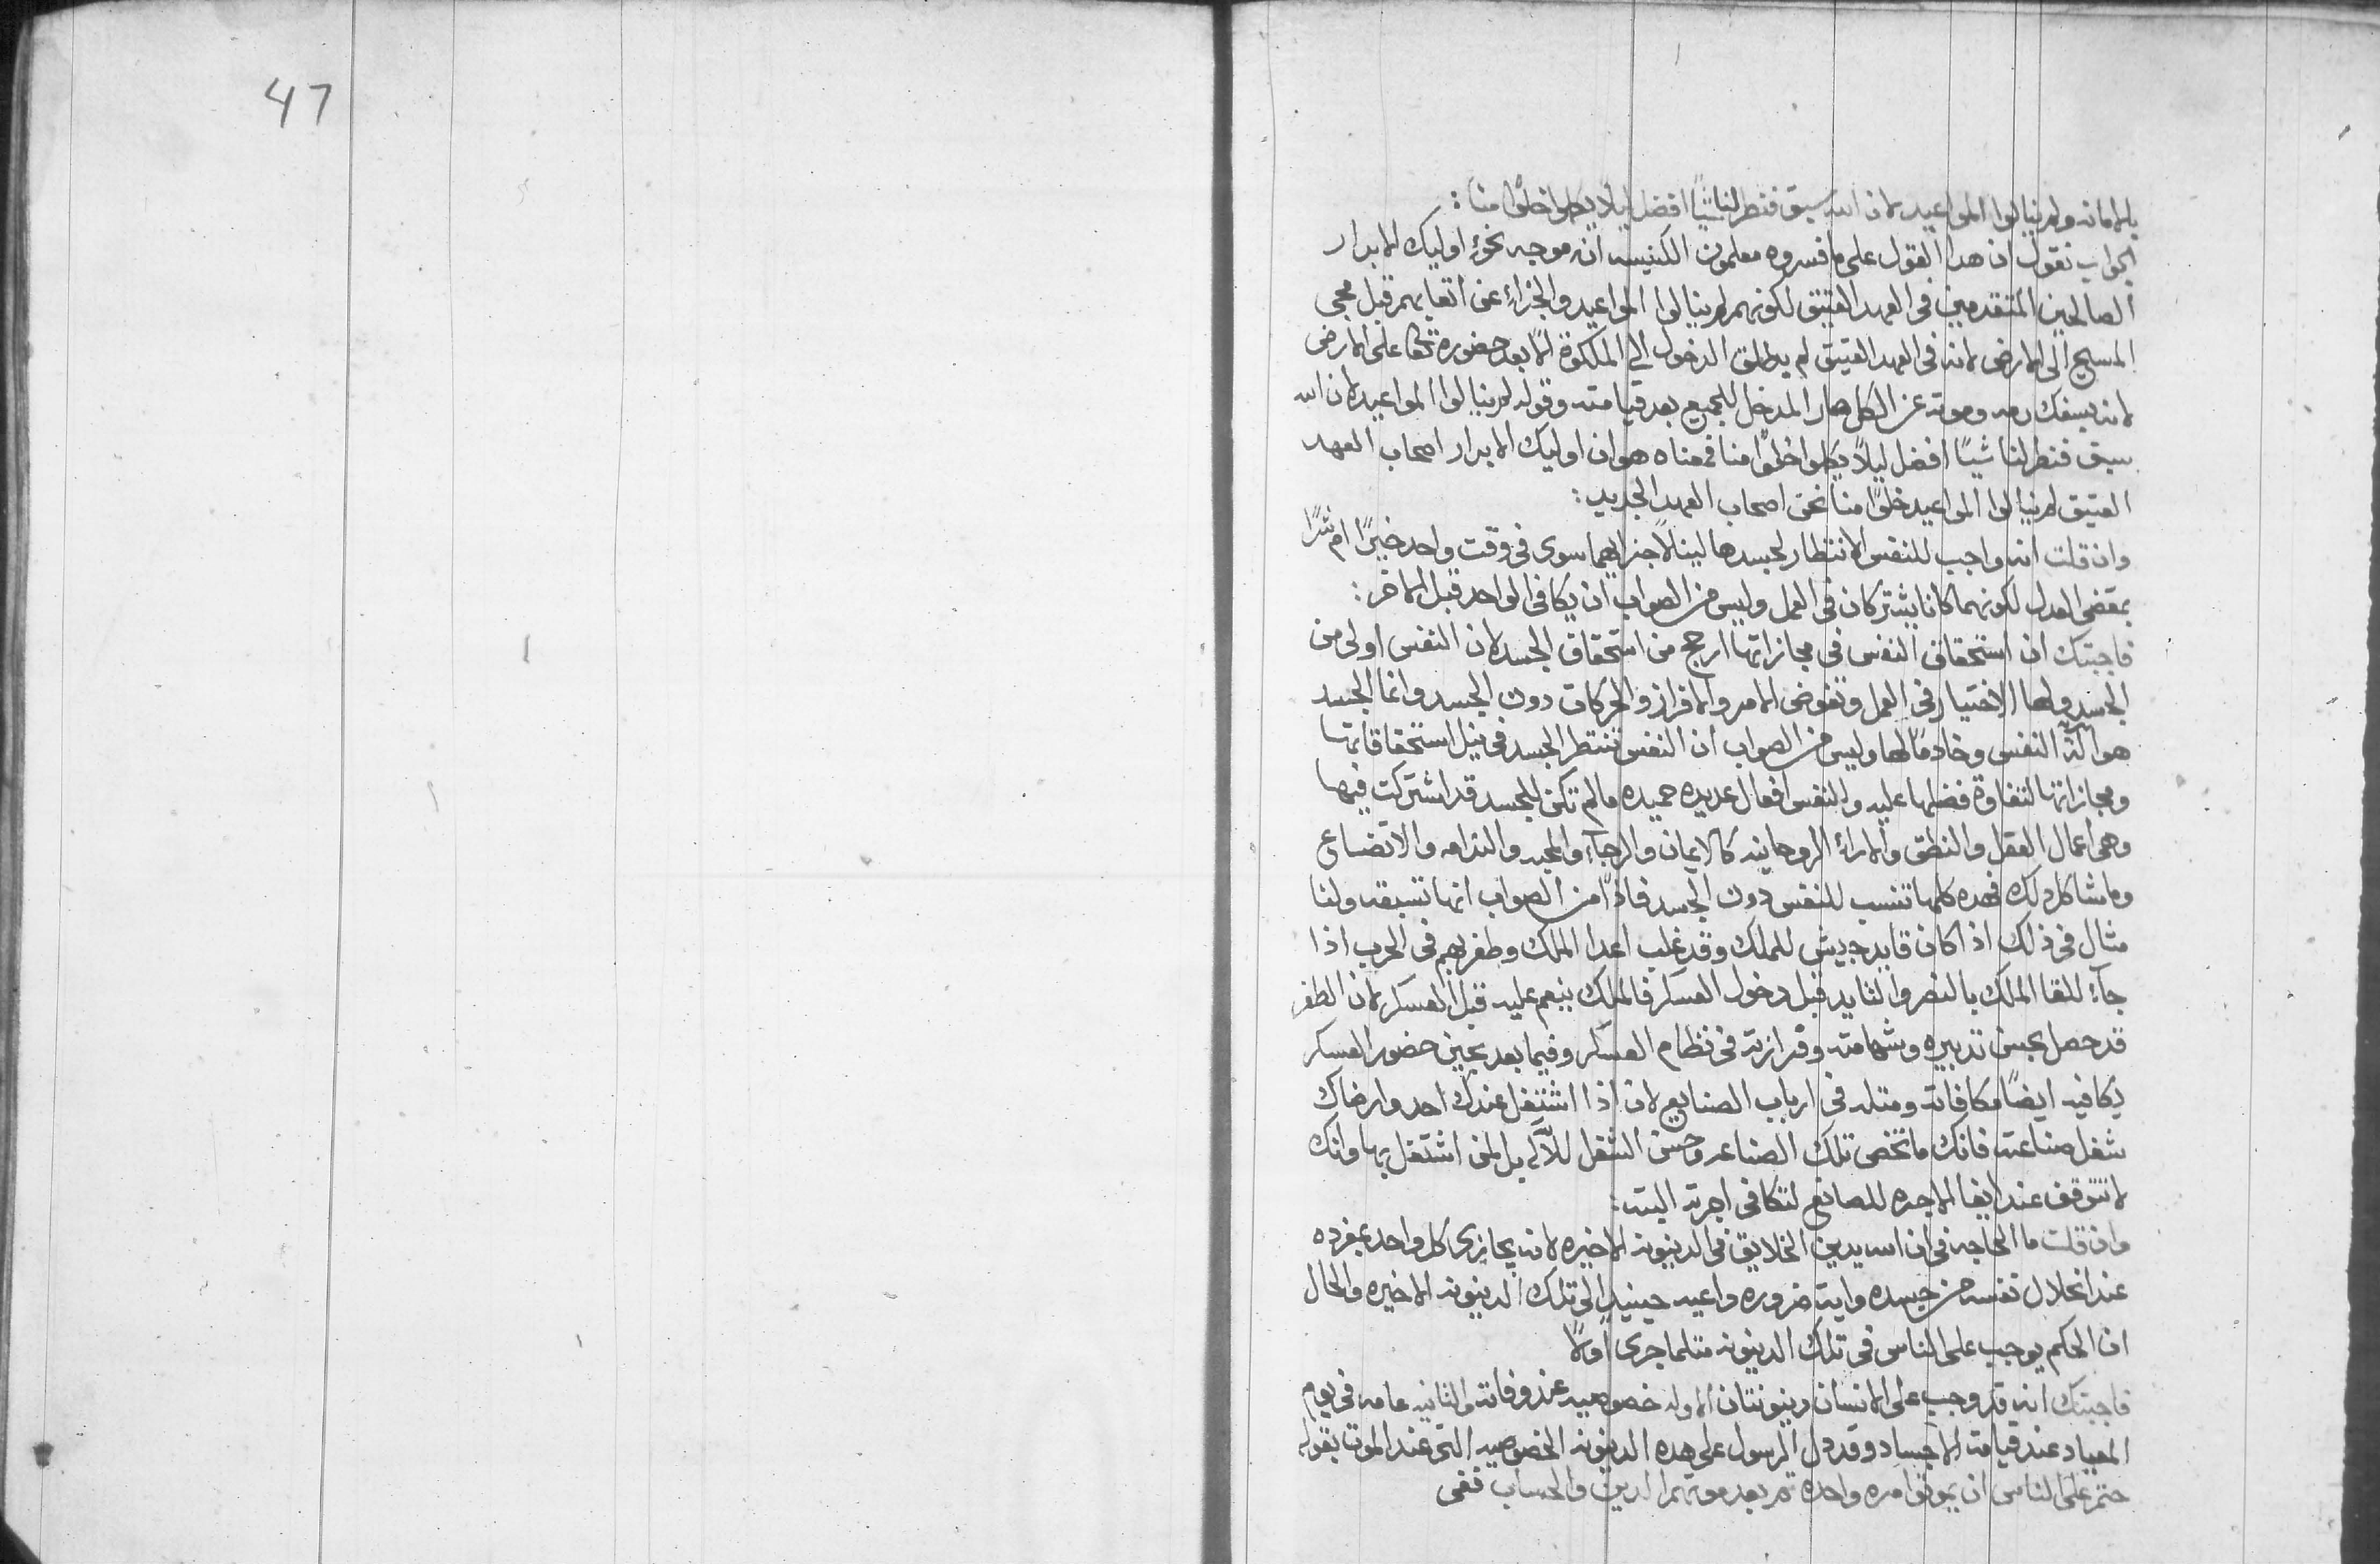 47
بالامانه ولم ينالوا المواعيد لان الله سبق فنظر لنا شيًا افضل ليلًا يكملوا خلوًا منا :
الجواب نقول ان هدا القول على ما فسروه معلمون الكنيسه انه موجه نحوُ اوليك الابرار
الصالحين المتقدمين فى العهد العتيق لكونهم لم ينالوا المواعيد والجزاءِ عن اتعابهم قبل مجى
المسيح الى الارض لانه فى العهد العتيق لم يطلق الدخول الى الملكوة الّا بعد حضوره على الارض
لانه بسفك دمه وموته عن الكل صار المدخل للجميع بعد قيامته وقوله لم ينالوا المواعيد لان الله
سبق فنظر لنا شيًا افضل ليلًا يكملوا خلوًا منا فمعناه هو ان اوليك الابرار اصحاب العهد
العتيق لم ينالوا المواعيد خلوًا منا نحن اصحاب العهد الجديد :
وان قلت انه واجب للنفس الانتظار لجسدها لينالا جزايهما سوى فى وقت واحد خيرًا ام شرًا
بمقضى العدل لكونهما كانا يشتركان فى العمل وليس من الصواب ان يكافى الواحد قبل الاخر :
فاجبتك ان استحقاق النفس فى مجازاتها ارجح من استحقاق الجسد لان النفس اولى من
الجسد ولها الاختيار فى العمل وتفوض الامر والافراز والحركات دون الجسد وانما الجسد
هو آلة النفس وخادمًا لها وليس من الصواب ان النفس تنتظر الجسد فى نيل استحقاقاتها
ومجازاتها لتفاوة فضلها عليه وللنفس افعال عديده حميده مالم تكن للجسد قد اشتركت فيها
وهى اعمال العقل والنطق والاراءِ الروحانيه كالايمان والرجآءِ والمحبه والندامه والاتضاع
وما شاكل دلك فهده كلها تنسب للنفس دون الجسد فاذًا من الصواب انها تسبقه ولنا
مثال فى ذلك اذا كان قايد جيش للملك وقد غلب اعدا الملك وظفر بهم فى الحرب اذا
جآءَ للقا الملك بالنصر والتايد قبل دخول العسكر فالملك ينعم عليه قبل العسكر لان الظفر
قد حصل بحسن تدبيره وشهامته وفرازته فى نظام العسكر وفيما بعد بحين حضور العسكر
يكافيه ايضًا مكافاته ومتله فى ارباب الصنايع لان اذا اشتغل عندك احد وارضاك
شغل صناعته فانك ما تخص تلك الصناعه وحسن الشغل للآله بل لمن اشتغل بها وانك
لا تتوقف عند ايفا الاجره للصانع لتكافى اجرته البته :
وان قلت ما الحاجه فى ان الله يدين الخلايق فى الدينونه الاخيره لانه يجازى كل واحد بمفرده
عند انحلال نفسه من جسده واية ضروره داعيه حينيدٍ الى تلك الدينونه الاخيره والحال
ان الحكم يوجب على الناس فى تلك الدينونه متلما جرى اولًا
فاجبتك انه قد وجب على الانسان دينونتان الاوله خصوصيه عند وفاته والتانيه عامه فى يوم
المعاد عند قيامة الاجساد وقد دل الرسول على هده الدينونه الخصوصيه التى عند الموت بقوله
حتم على الناس ان يموتوا مره واحده تم بعد موتهم الدين والحساب ففى